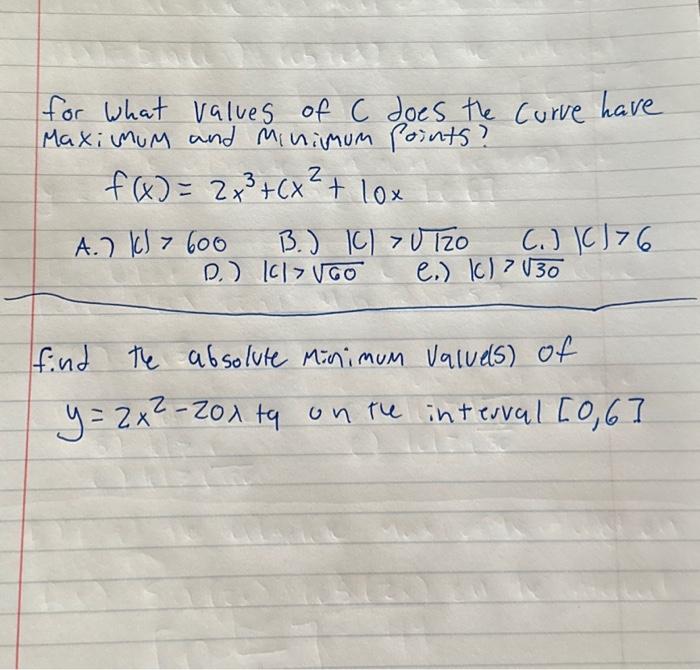 for what values of C does the curve have
Maximum and Minimum Points?
f(x) = 2x³+Cx²+ 10x
A.) |C| > 600 B.) |C| > √120 C.) |C| > 6
D.) |C| > √60 e.) |C| > √30
find the absolute Minimum Value(s) of
y = 2x² - 20x + 9 on the interval [0,6]